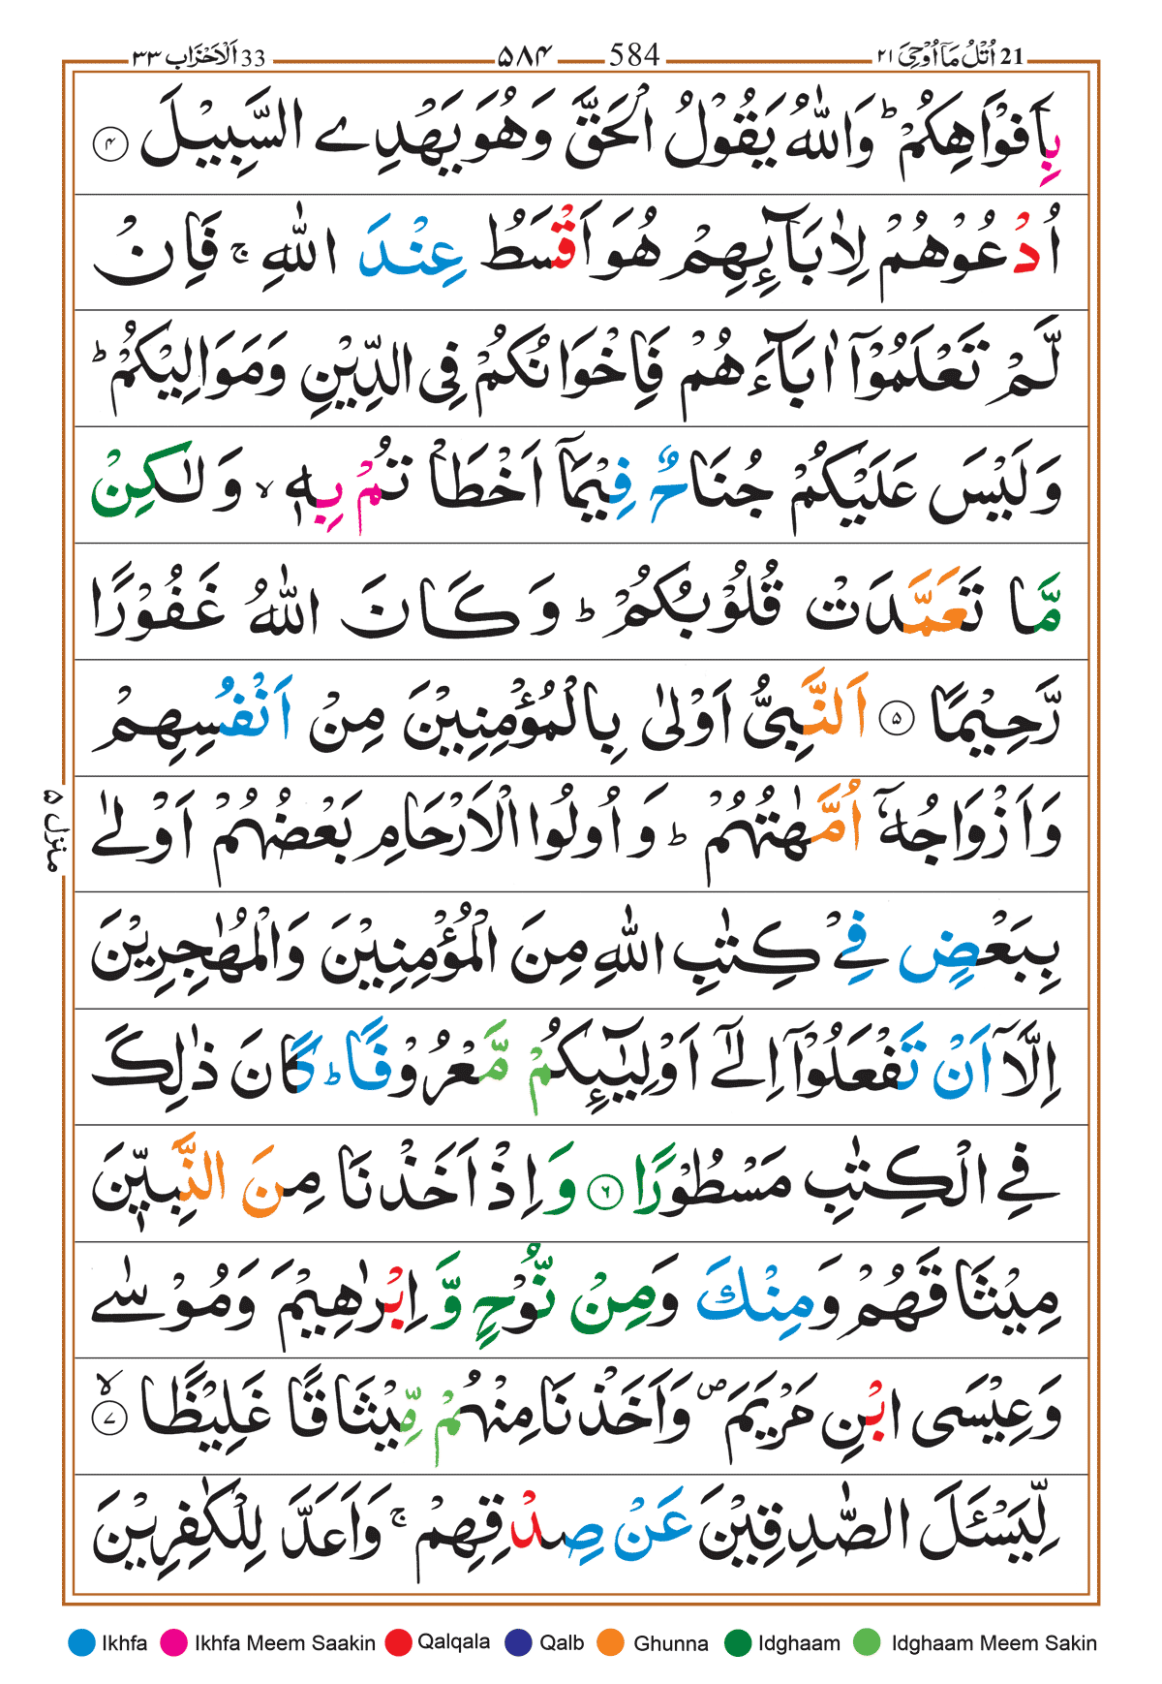 21 اُتْلُ مَاۤ اُوْحِیَ ۲۱ 584 ۵۸۴ 33 اَلْاَحْزَاب ۳۳
بِاَفْوَاهِكُمْ ؕ وَاللّٰهُ یَقُوْلُ الْحَقَّ وَهُوَ یَهْدِی السَّبِیْلَ ۴
اُدْعُوْهُمْ لِاٰبَآئِهِمْ هُوَ اَقْسَطُ عِنْدَ اللّٰهِ ۚ فَاِنْ
لَّمْ تَعْلَمُوْۤا اٰبَآءَهُمْ فَاِخْوَانُكُمْ فِی الدِّیْنِ وَمَوَالِیْكُمْ ؕ
وَلَیْسَ عَلَیْكُمْ جُنَاحٌ فِیْمَاۤ اَخْطَاْتُمْ بِهٖ ۙ وَلٰكِنْ
مَّا تَعَمَّدَتْ قُلُوْبُكُمْ ؕ وَكَانَ اللّٰهُ غَفُوْرًا
رَّحِیْمًا ۵ اَلنَّبِیُّ اَوْلٰی بِالْمُؤْمِنِیْنَ مِنْ اَنْفُسِهِمْ
وَاَزْوَاجُهٗۤ اُمَّهٰتُهُمْ ؕ وَاُولُوا الْاَرْحَامِ بَعْضُهُمْ اَوْلٰی
بِبَعْضٍ فِیْ كِتٰبِ اللّٰهِ مِنَ الْمُؤْمِنِیْنَ وَالْمُهٰجِرِیْنَ
اِلَّاۤ اَنْ تَفْعَلُوْۤا اِلٰۤی اَوْلِیٰٓئِكُمْ مَّعْرُوْفًا ؕ كَانَ ذٰلِكَ
فِی الْكِتٰبِ مَسْطُوْرًا ۶ وَاِذْ اَخَذْنَا مِنَ النَّبِیّٖنَ
مِیْثَاقَهُمْ وَمِنْكَ وَمِنْ نُّوْحٍ وَّاِبْرٰهِیْمَ وَمُوْسٰی
وَعِیْسَی ابْنِ مَرْیَمَ ۪ وَاَخَذْنَا مِنْهُمْ مِّیْثَاقًا غَلِیْظًا ۙ ۷
لِّیَسْـَٔلَ الصّٰدِقِیْنَ عَنْ صِدْقِهِمْ ۚ وَاَعَدَّ لِلْكٰفِرِیْنَ
منزل ۵
Ikhfa Ikhfa Meem Saakin Qalqala Qalb Ghunna Idghaam Idghaam Meem Sakin